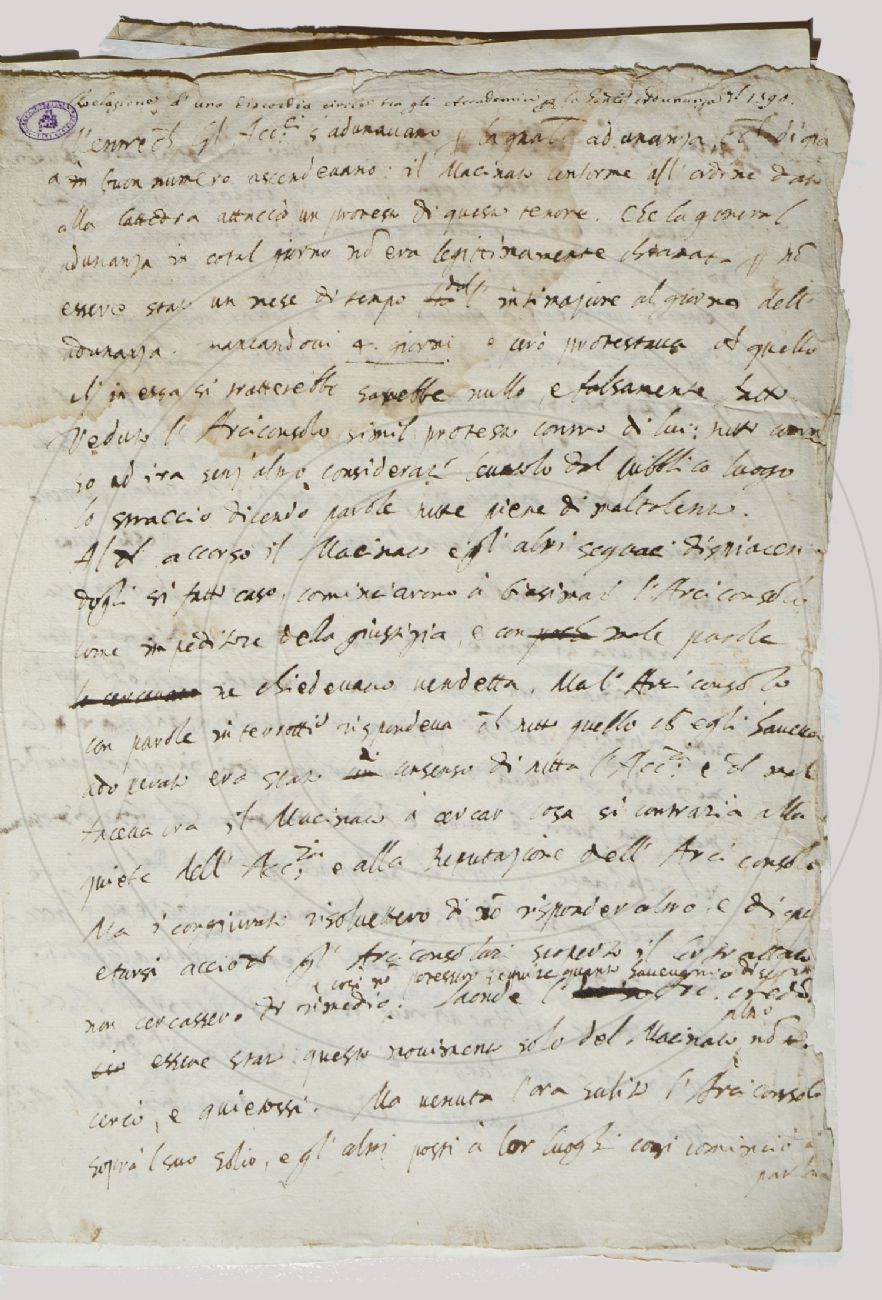 Relazione d'una discordia circa tra gli Accademici p la Gen.le adunanza del 1590.
Mentre ch gl' Acc.ci s'adunavano p la gnale adunanza, e ch di già
a in buon numero ascendevano: il Macinato conforme all' ordine dato
alla cattedra attaccò un protesto di questo tenore. Che la general
adunanza in cotal giorno nō era legittimamente chiamata p nō
essere stato un mese di tempo dall' intimazione al giorno dell'
adunanza. mancandovi 4. giorni e ciò protestava ch quello
ch' in essa si tratterebbe sarebbe nullo, e falsamente fatto
Veduto l' Arciconsolo simil protesto contro di lui: tutto
so ad ira senz' altro considerare del pubblico luogo
lo stracciò dicendo parole tutte piene di maltalento.
Al ch accorso il Macinato e gl' altri seguaci dispiacen
dogli sì fatto caso, cominciarono à biasimare l' Arciconsolo
come impeditore della giustizia, e con male parole
ne chiedevano vendetta. Ma l' Arciconsolo
con parole interrotte rispondeva ch tutto quello ch egli haveva
adoperato era stato consenso di tutta l' Acc.ia e ch mal
faceva ora il Macinato à cercar cosa sì contraria alla
quiete dell' Acc.ia e alla Reputazione dell' Arciconsolo
Ma i congiurati risolvettero di nō risponder altro, e di qui
etarsi acciò ch gl' Arciconsolari scoperto il lor trattato
e così nō potessero seguire quanto havevano
non cercassero di rimedio. Laonde l' Arc. credē
altro
essere stato questo movimento solo del Macinato nō
cercò, e quietossi. Ma venuta l' ora salito l' Arciconsolo
sopra l suo solio, e gl' altri posti à lor luoghi così cominciò à
parlare